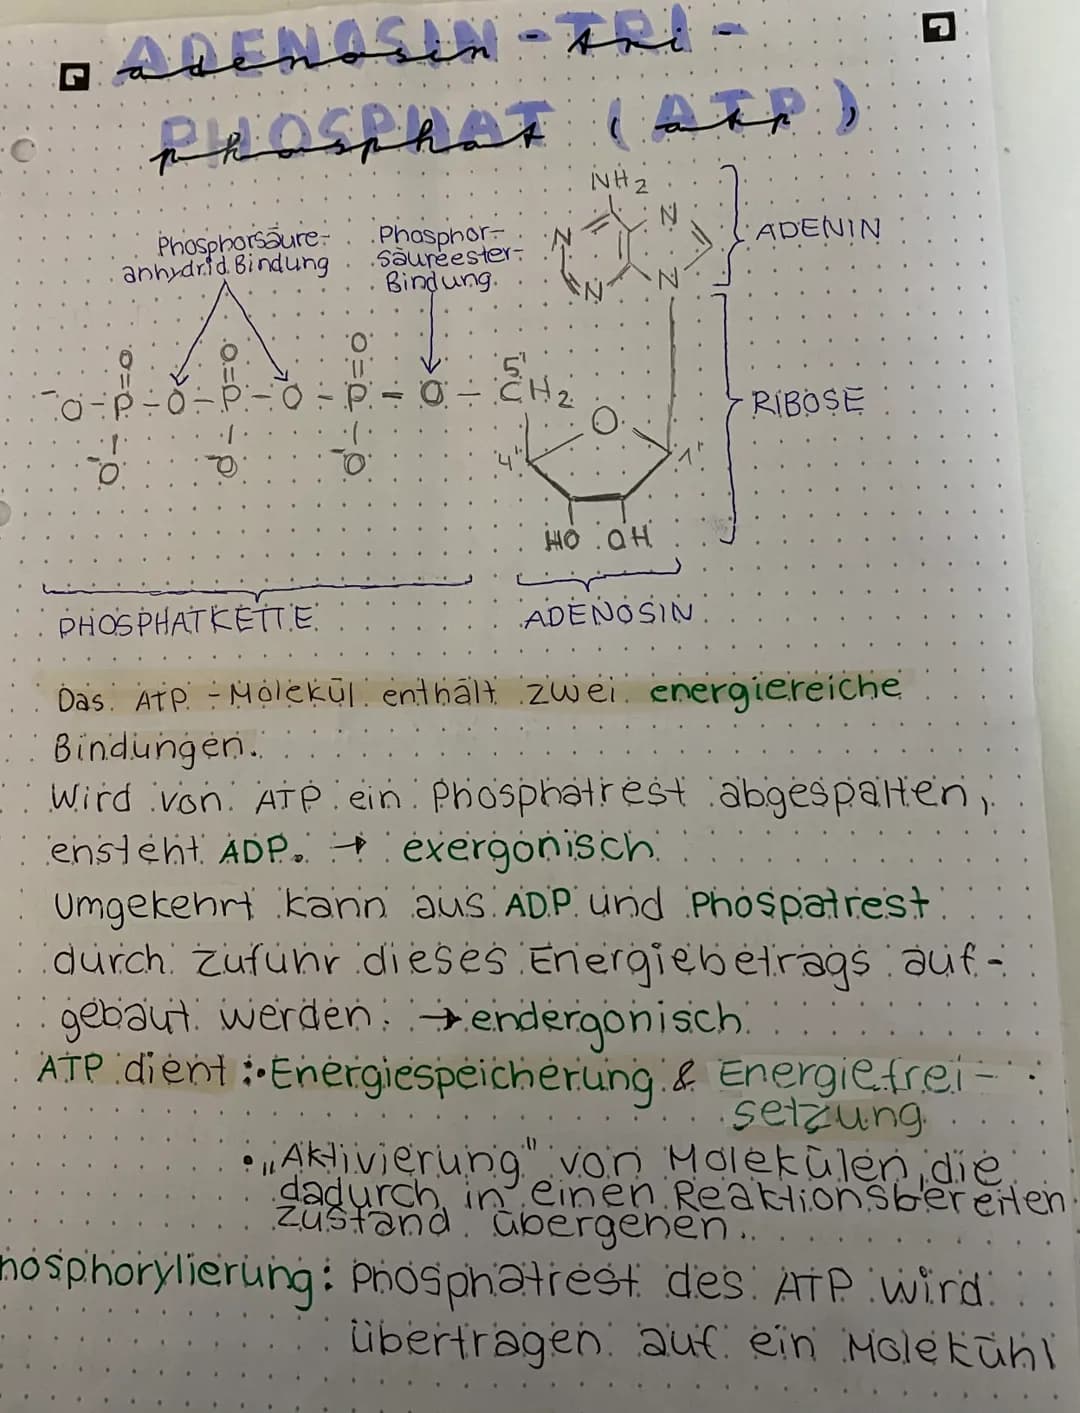 ADENOSIN-TRI-
adenosin tri
PHOSPHAT (ATP)
phosphat atp
NH2
N
N
N
N
ADENIN
Phosphorsäure-
anhydrid Bindung
Phosphor-
säureester-
Bindung
O O O
-O-P-O-P-O-P-O-CH2
5'
-O -O -O
O
4' 1'
HO OH
RIBOSE
PHOSPHATKETTE
ADENOSIN
Das ATP-Molekül enthält zwei energiereiche
Bindungen.
Wird von ATP ein Phosphatrest abgespalten,
ensteht ADP. → exergonisch
Umgekehrt kann aus ADP und Phospatrest
durch Zufuhr dieses Energiebetrags auf-
gebaut werden. → endergonisch
ATP dient : • Energiespeicherung & Energiefrei-
setzung
• „Aktivierung" von Molekülen, die
dadurch in einen Reaktionsbereiten
zustand übergehen.
hosphorylierung: Phosphatrest des ATP wird
übertragen auf ein Molekühl